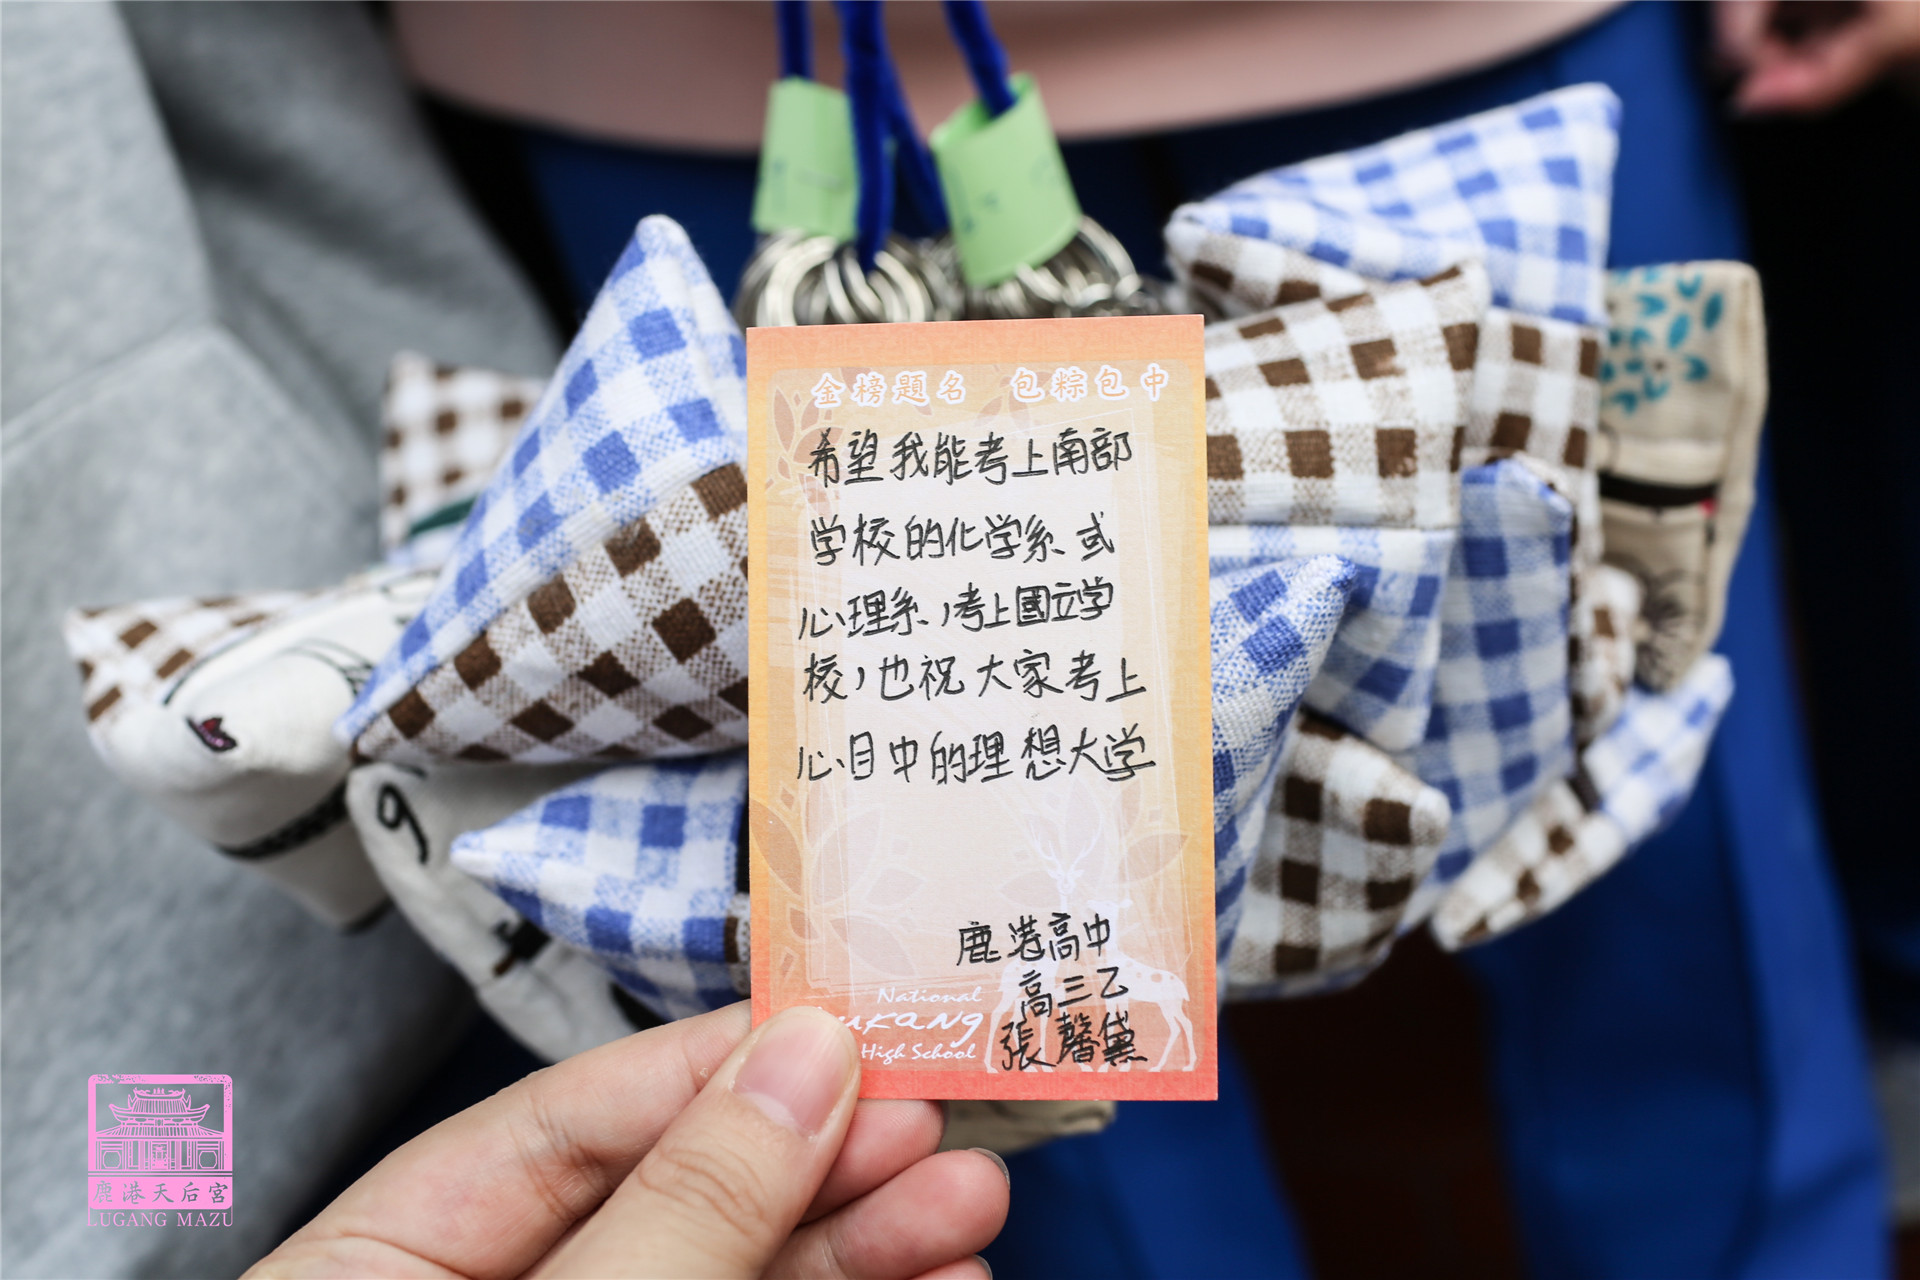 金榜題名 包粽包中
希望我能考上南部
学校的化学系或
心理系，考上國立学
校，也祝大家考上
心目中的理想大学
鹿港高中
高三乙
張馨黛
National
High School
9
鹿港天后宮
LUGANG MAZU